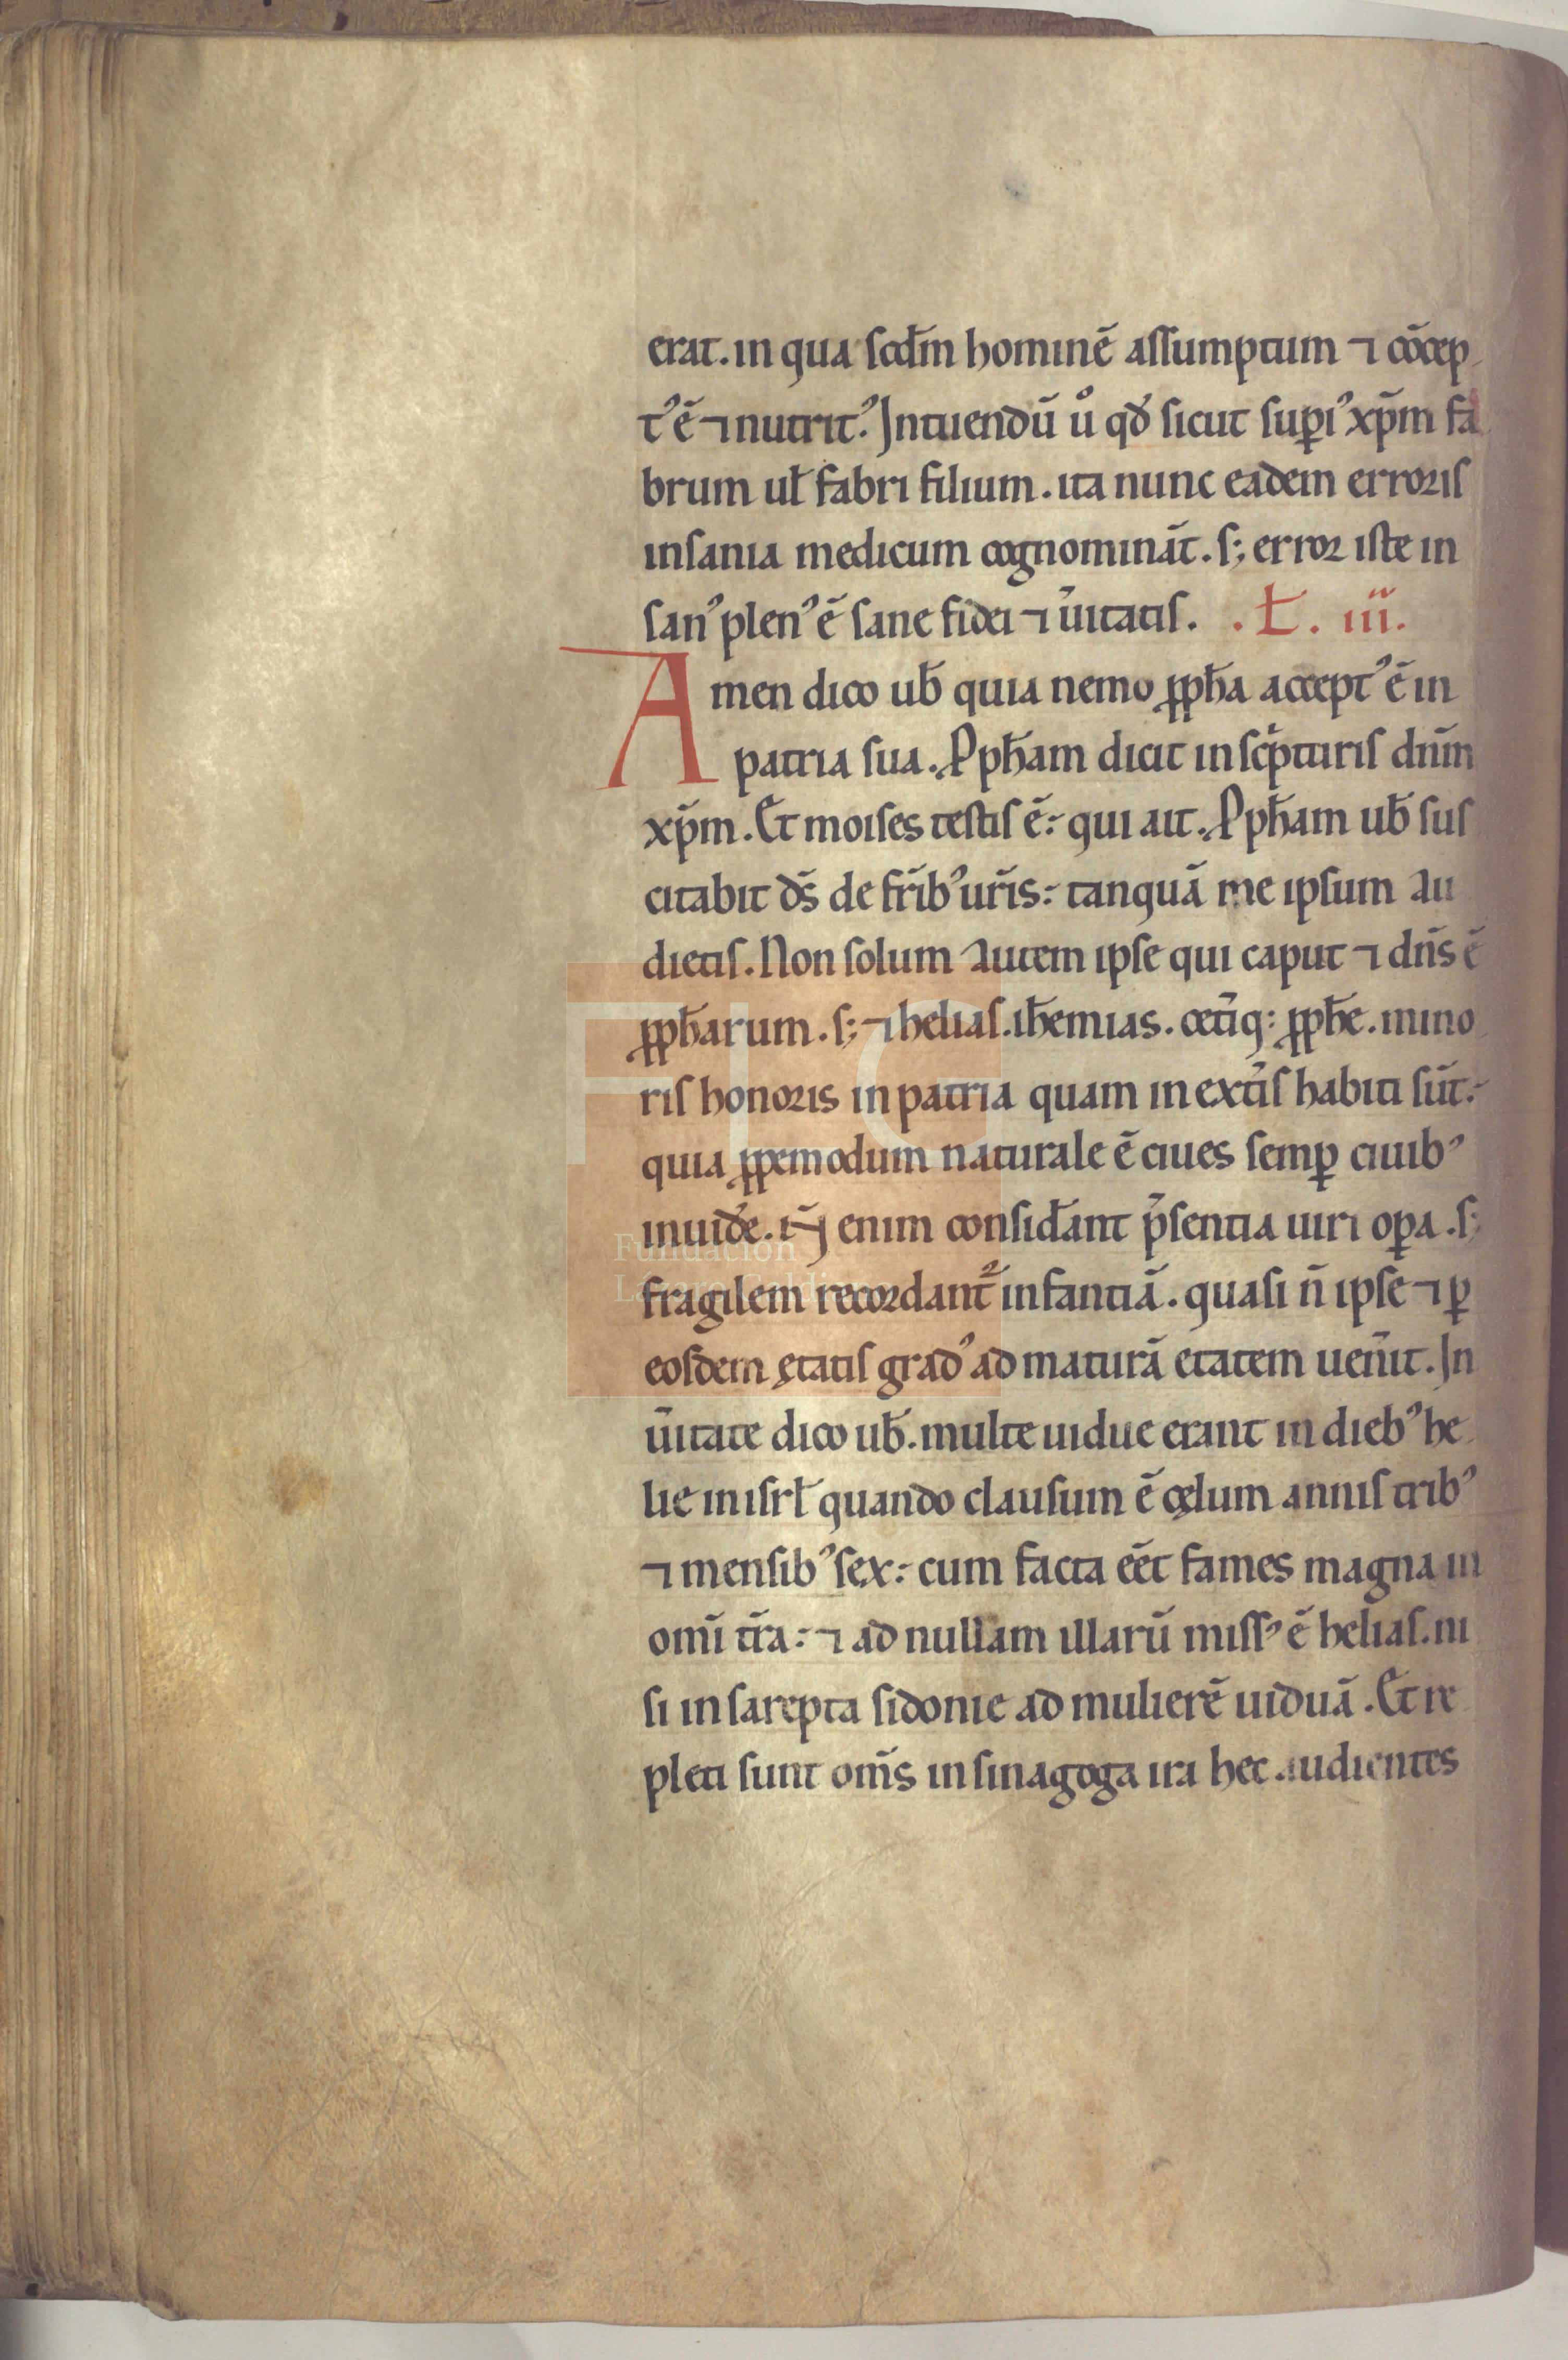 erat. in qua scd̄m hominē assumptum ⁊ cōcep
tꝰ ē ⁊ nutritꝰ. Intuendū uͦ qđ sicut supiꝰ xp̄m fa
brum uł fabri filium. ita nunc eadem erroris
insania medicum cognomināt. s; error iste in
sanꝰ plenꝰ ē sane fidei ⁊ ūitatis. . Ł. iii.
Amen dico ub̄ quia nemo ꝓph̄a acceptꝰ ē in
patria sua. Ꝓph̄am dicit in scͥpturis dn̄m
xp̄m. Et moises testis ē: qui ait. Ꝓph̄am ub̄ sus
citabit ds̄ de frībꝰ urīs: tanquā me ipsum au
dietis. Non solum autem ipse qui caput ⁊ dn̄s ē
ꝓph̄arum. s; ⁊ helias. ih̄emias. cet̄iq: ꝓph̄e. mino
ris honoris in patria quam in ext̄is habiti sūt:
quia ꝓpemodum naturale ē ciues semꝑ ciuibꝰ
inuid̄e. enim consid̄ant p̄sentia uiri oꝑa. s;
fragilem recordant᷑ infantiā. quasi n̄ ipse ⁊ ꝑ
eosdem ętatis gradꝰ ad maturā etatem uen̄it. In
ūitate dico ub̄. multe uidue erant in diebꝰ he
lie in isrł quando clausum ē cęlum annis tribꝰ
⁊ mensibꝰ sex: cum facta eēt fames magna in
omī tr̄a: ⁊ ad nullam illarū missꝰ ē helias. ni
si in sarepta sidonie ad mulierē uiduā. Et re
pleti sunt om̄s in sinagoga ira hec audientes
FLG
Fundación
Lázaro Galdiano